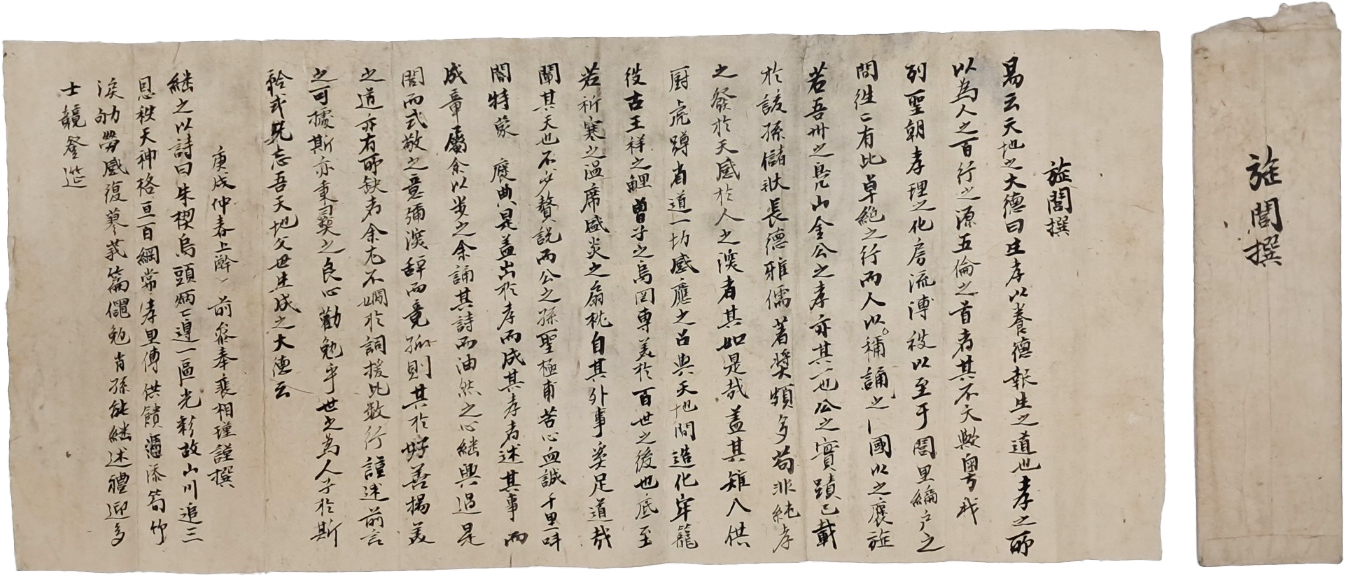 旌閭撰
易云天地之大德曰生孝以養德報生之道也孝之所
以為人之百行之源五倫之首者其不天歟粤我
列聖朝孝理之化旁流溥被以至于閭里編户之
間往〻有比卓絶之行而人以補誦之國以之褒旌
若吾州之見山金公之孝亦其一也公之實蹟已載
於該孫儲狀長德雅儒著奬頗多苟非純孝
之發於天感於人之深者其如是哉盖其雉入供
厨虎蹲省道一切感應之召與天地間造化牢籠
役古王祥之鯉曽子之烏罔專美於百世之後也底至
若祈寒之温席盛炎之扇枕自其外事奚足道哉
闡其天也不必贅説而公之孫聖極甫苦心血誠千里叫
閤特蒙 㢠典是盖出於孝而成其孝者述其事而
成章屬余以出之余誦其詩而油然之心繼興過是
閭而式敬之意彌深辞而竟孤則其於好善揚美
之道亦有所缺者余尤不嫺於詞援比數行謹述前言
之可據斯亦秉彛之良心勸勉乎世之為人子於斯
軫哉旣忘吾天地父母生成之大德云
庚戌仲春上澣 前叅奉襄相瑾謹撰
繼之以詩曰朱楔烏頭炳〻邊一區光彩故山川追三
恩袟天神格亘百綱常孝里傳供饋滫滫筍竹
淚劬勞感復蓼莪篇僶勉肖孫能繼述軆迎多
士競登筵
旌閭撰